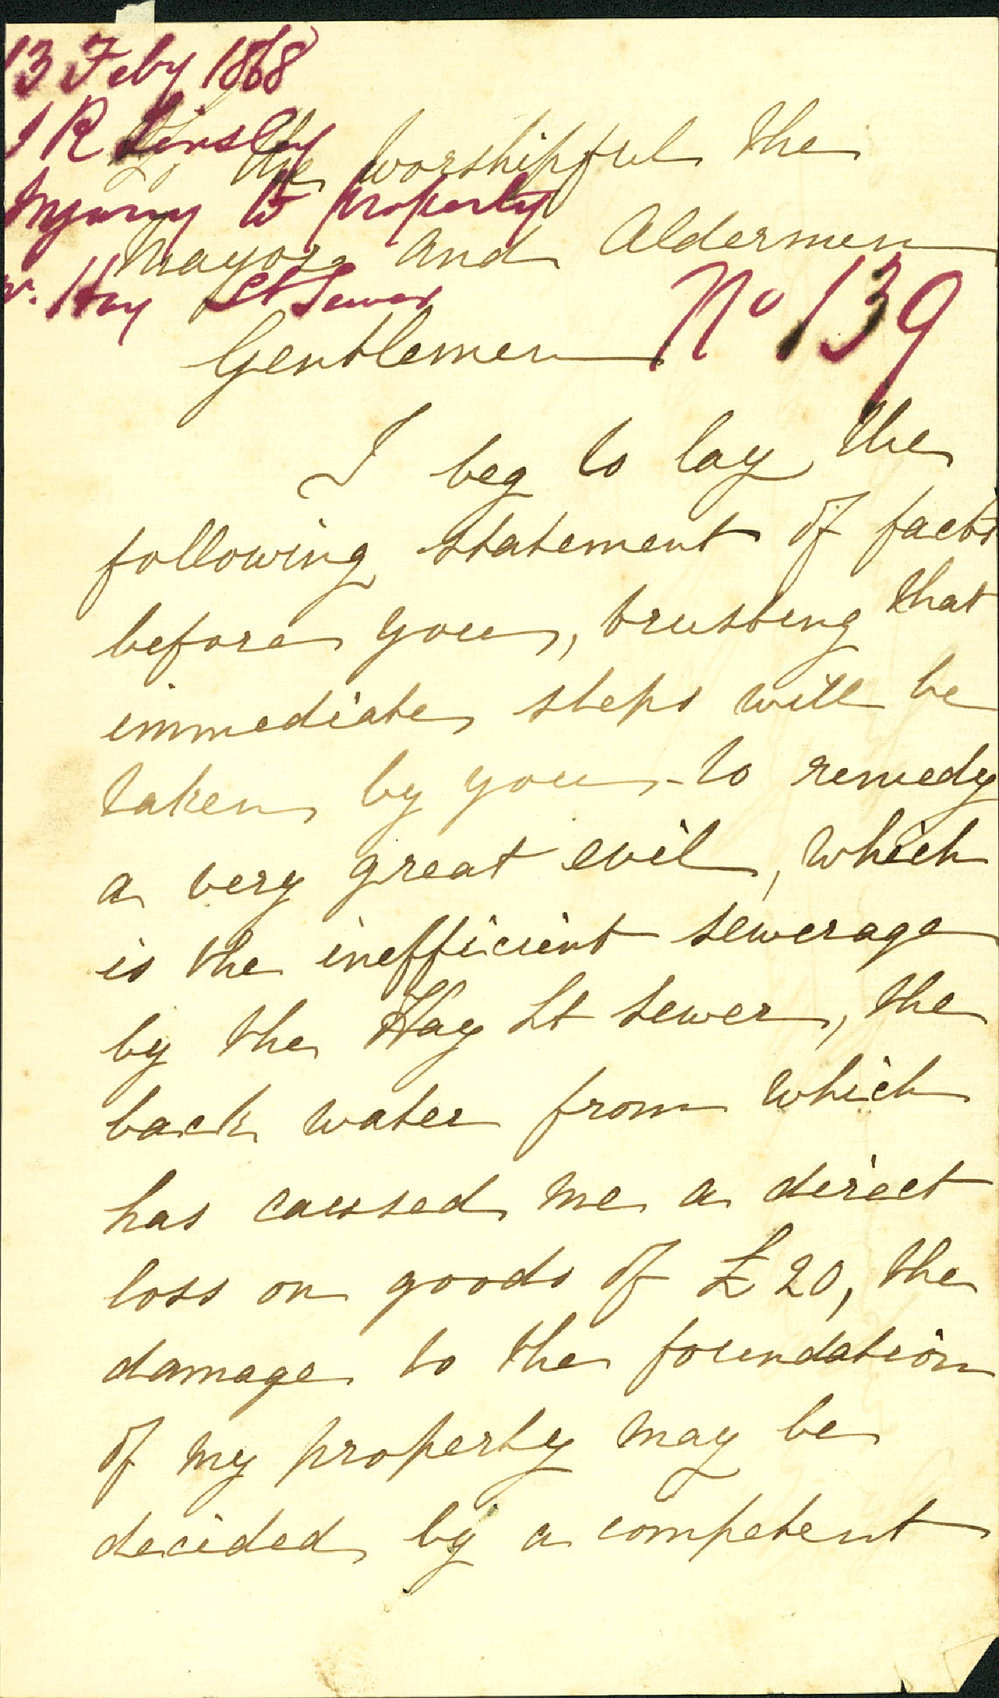 13 Feby 1868
J R Linsley
Injury to property
v. Hay St Sewer
No 139
To the worshipful the
Mayor and Aldermen
Gentlemen
I beg to lay the
following statement of facts
before you, trusting that
immediate steps will be
taken by you to remedy
a very great evil, which
is the inefficient sewerage
by the Hay St sewer, the
back water from which
has caused me a direct
loss on goods of £20, the
damage to the foundation
of my property may be
decided by a competent